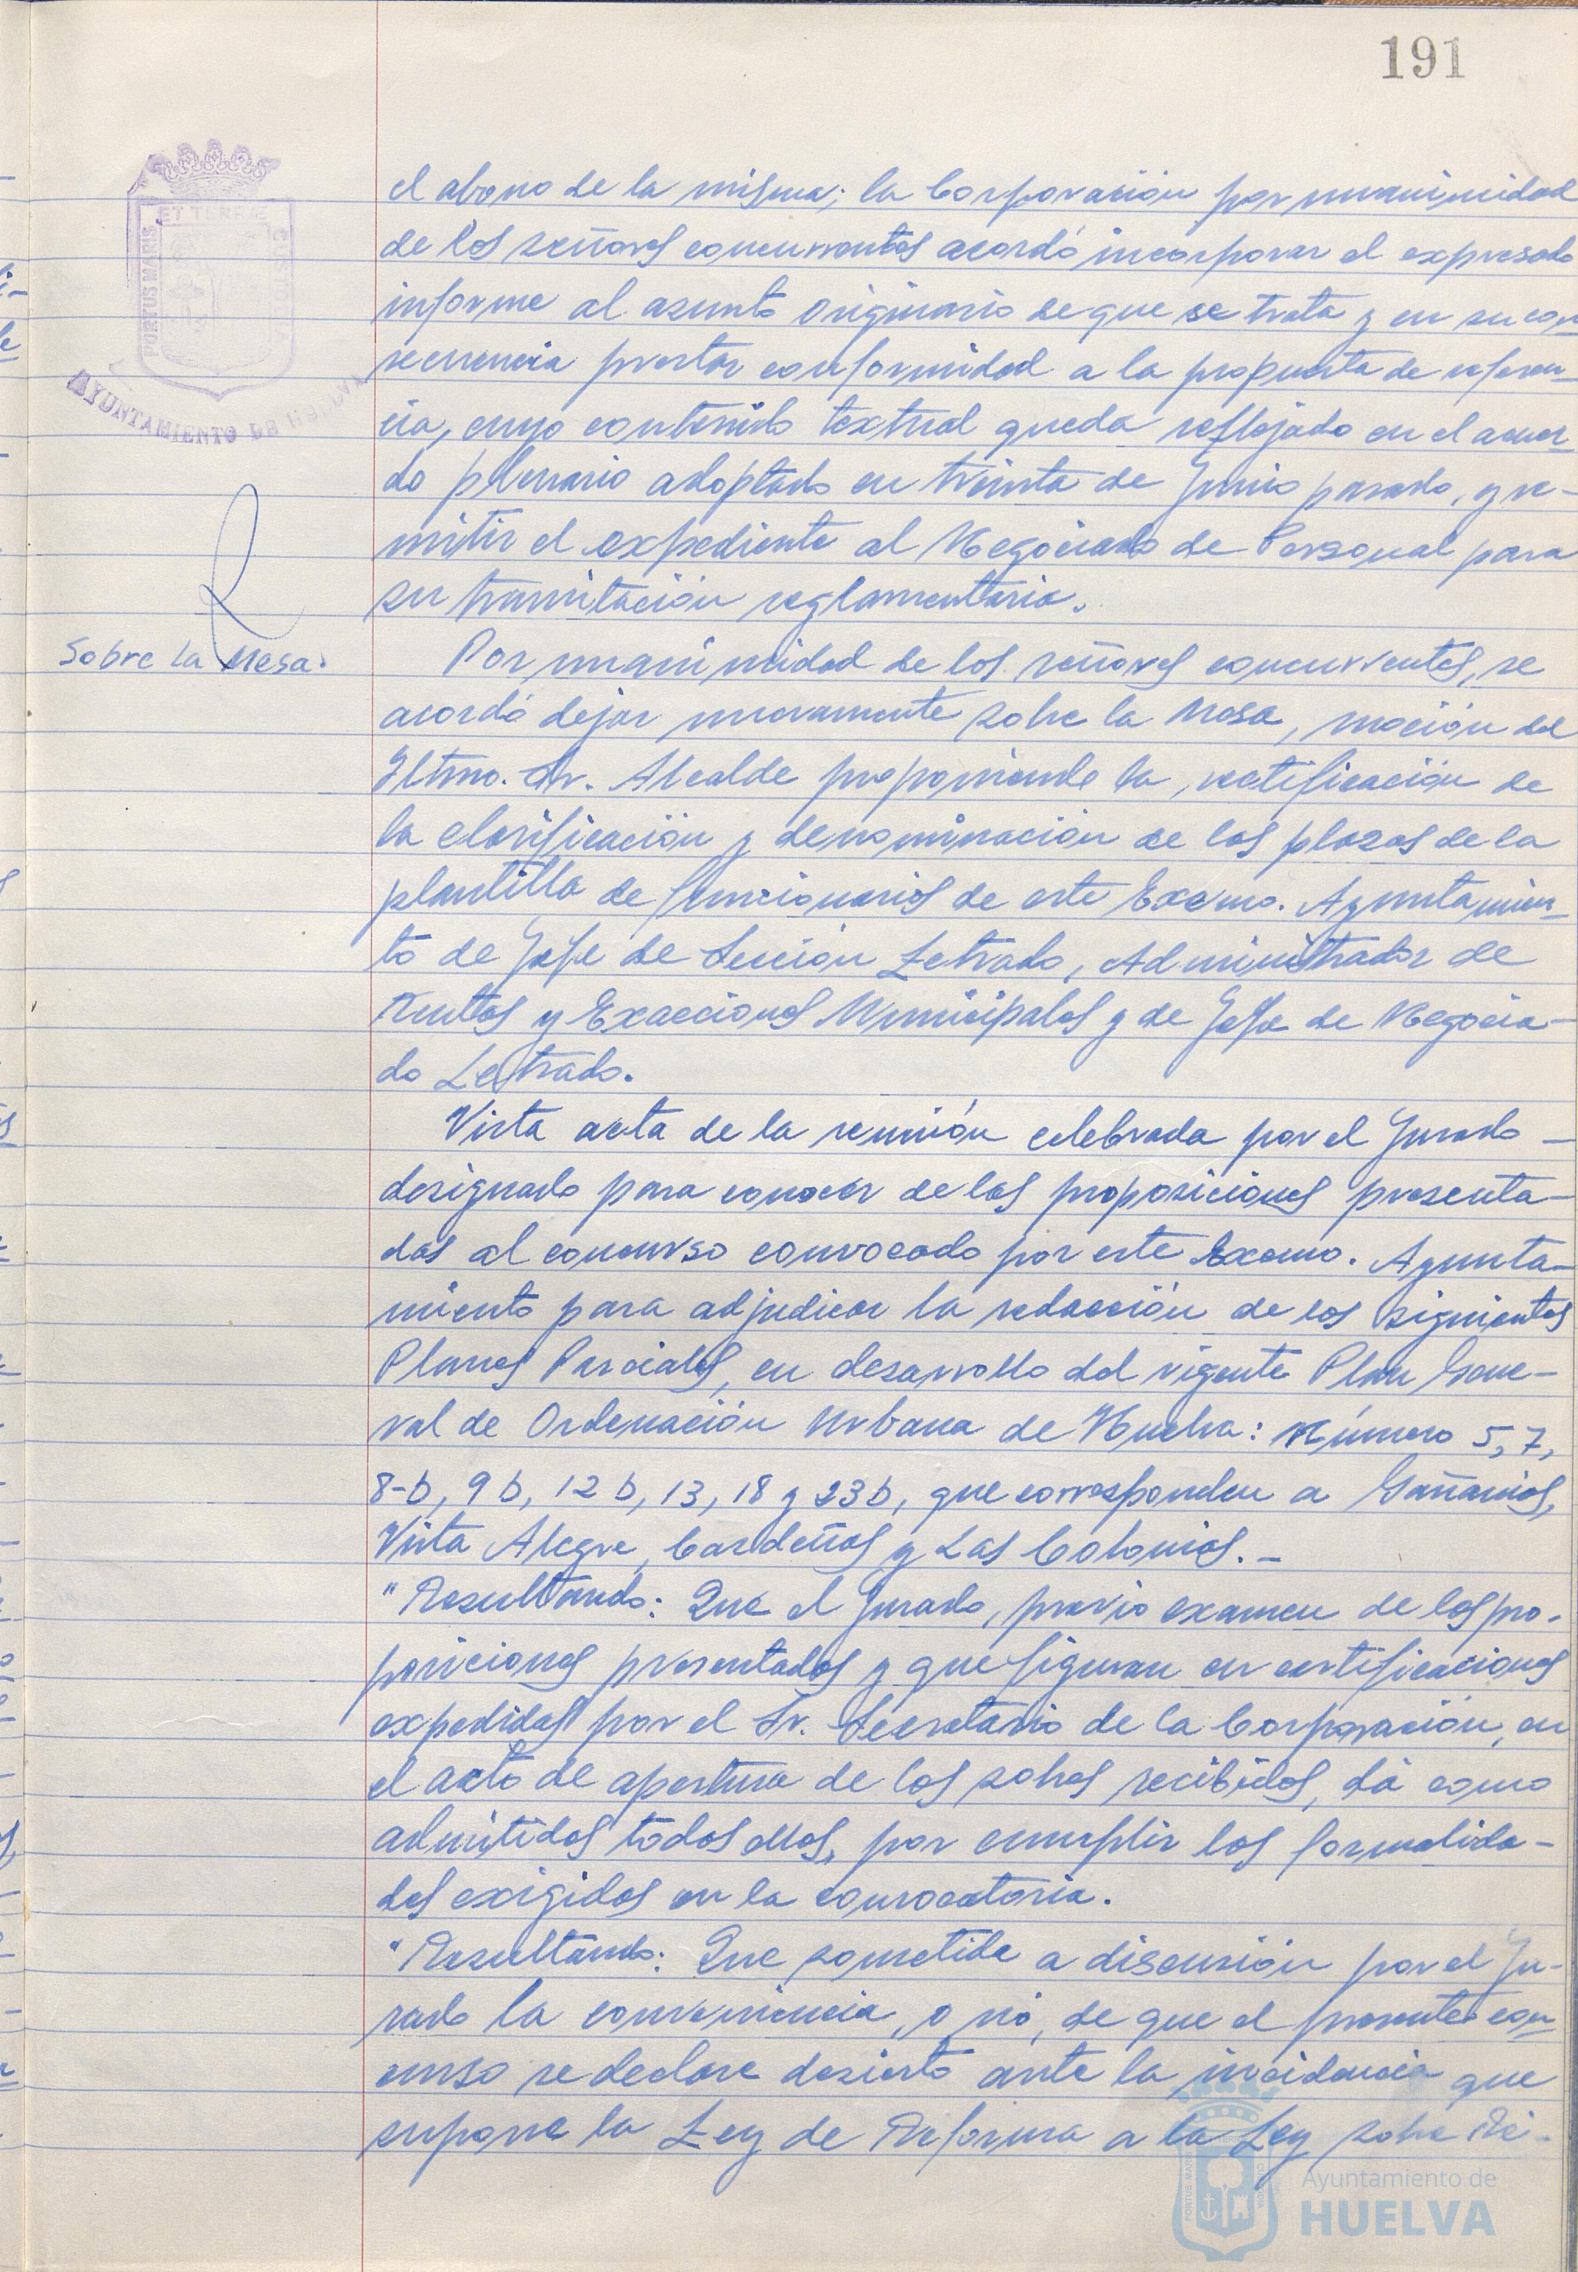 191
el abono de la misma; la Corporación por unanimidad
de los señores concurrentes acordó incorporar el expresado
informe al asunto originario de que se trata y en su con
secuencia prestar conformidad a la propuesta de referen-
cia, cuyo contenido textual queda reflejado en el acuer-
do plenario adoptado en treinta de Junio pasado, y re-
mitir el expediente al Negociado de Personal para
su tramitación reglamentaria.
Sobre la Mesa.
Por unanimidad de los señores concurrentes, se
acordó dejar nuevamente sobre la Mesa, moción del
Iltmo. Sr. Alcalde proponiendo la rectificación de
la clasificación y denominación de las plazas de la
plantilla de funcionarios de este Excmo. Ayuntamien-
to de Jefe de Sección Letrado, Administrador de
Rentas y Exacciones Municipales y de Jefe de Negocia-
do Letrado.
Vista acta de la reunión celebrada por el Jurado -
designado para conocer de las proposiciones presenta-
das al concurso convocado por este Excmo. Ayunta-
miento para adjudicar la redacción de los siguientes
Planes Parciales, en desarrollo del vigente Plan Gene-
ral de Ordenación Urbana de Huelva: Número 5, 7,
8-b, 9 b, 12 b, 13, 18 y 23b, que corresponden a Gañanios,
Vista Alegre, Cardeñas y Las Colonias. -
"Resultando: Que el Jurado, previo examen de las pro-
posiciones presentadas y que figuran en certificaciones
expedidas por el Sr. Secretario de la Corporación, en
el acto de apertura de los sobres recibidos, dá como
admitidos todos ellos, por cumplir las formalida-
des exigidas en la convocatoria.
"Resultando: Que sometida a discusión por el Ju-
rado la conveniencia, o nó, de que el presente con
curso se declare desierto ante la incidencia que
supone la Ley de Reforma a la Ley sobre Ré-
PORTUS MARIS ET TERRAE CUSTODIA
AYUNTAMIENTO DE HUELVA
Ayuntamiento de
HUELVA